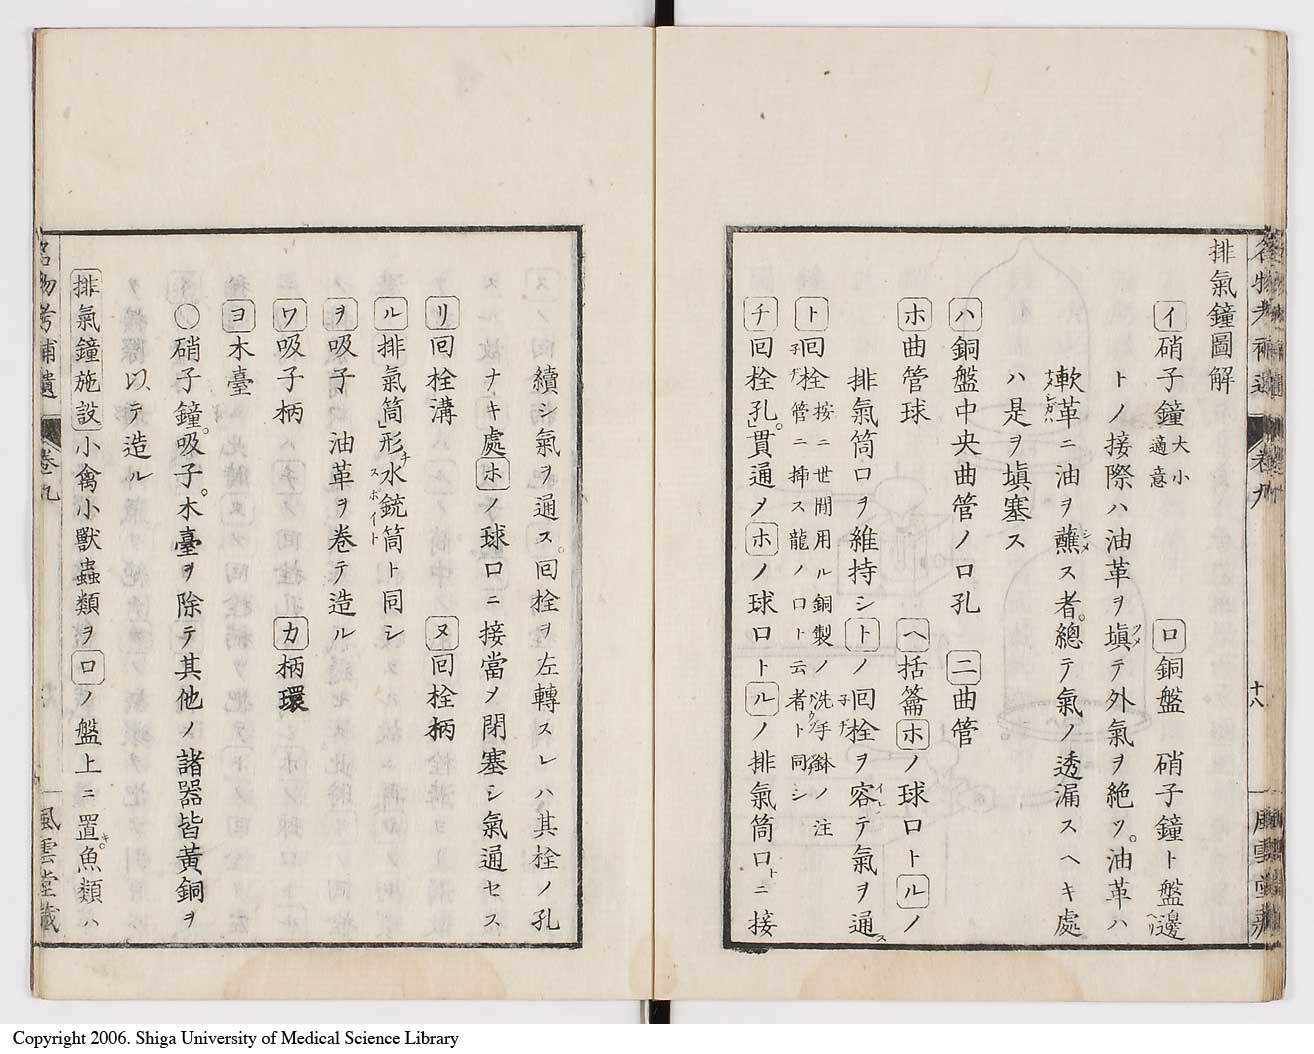 排氣鐘圖解
イ 硝子鐘 大小適意 ロ 銅盤 硝子鐘ト盤邊ヘリ
トノ接際ハ油革ヲ塡ツメテ外氣ヲ絶ツ。油革ハ
軟革ナメシガハニ油ヲ蘸シメス者。總テ氣ノ透漏スヘキ處
ハ是ヲ塡塞ス
ハ 銅盤中央曲管ノ口孔 ニ 曲管
ホ 曲管球 ヘ 括籥 ホノ球口トルノ
排氣筒口ヲ維持シトノ回栓子ヂヲ容イレテ氣ヲ通ス
ト 回栓子ヂ 按ニ世間用ル銅製ノ洗手鉢ノ注
管ニ挿ス龍ノ口ト云者ト同シ
チ 回栓孔。貫通メホノ球口トルノ排氣筒口トニ接
名物考補遺 卷九 十八 風雲堂藏
續シ氣ヲ通ス。回栓ヲ左轉スレハ其栓ノ孔
ナキ處ホノ球口ニ接當メ閉塞シ氣通セス
リ 回栓溝 ヌ 回栓柄
ル 排氣筒 形水銃筒スポイトト同シ
ヲ 吸子 油革ヲ巻テ造ル
ワ 吸子柄 カ 柄環
ヨ 木臺
○硝子鐘。吸子。木臺ヲ除テ其他ノ諸器皆黃銅ヲ
以テ造ル
排氣鐘施設 小禽小獸蟲類ヲロノ盤上ニ置キ。魚類ハ
名物考補遺 卷九 風雲堂藏
Copyright 2006. Shiga University of Medical Science Library